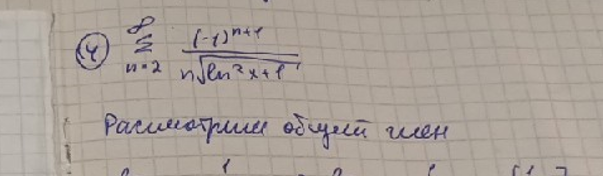 ④ ∞ Σ n=2 (-1)^{n+1} / n√(ln²x+1)
Рассмотрим общий член